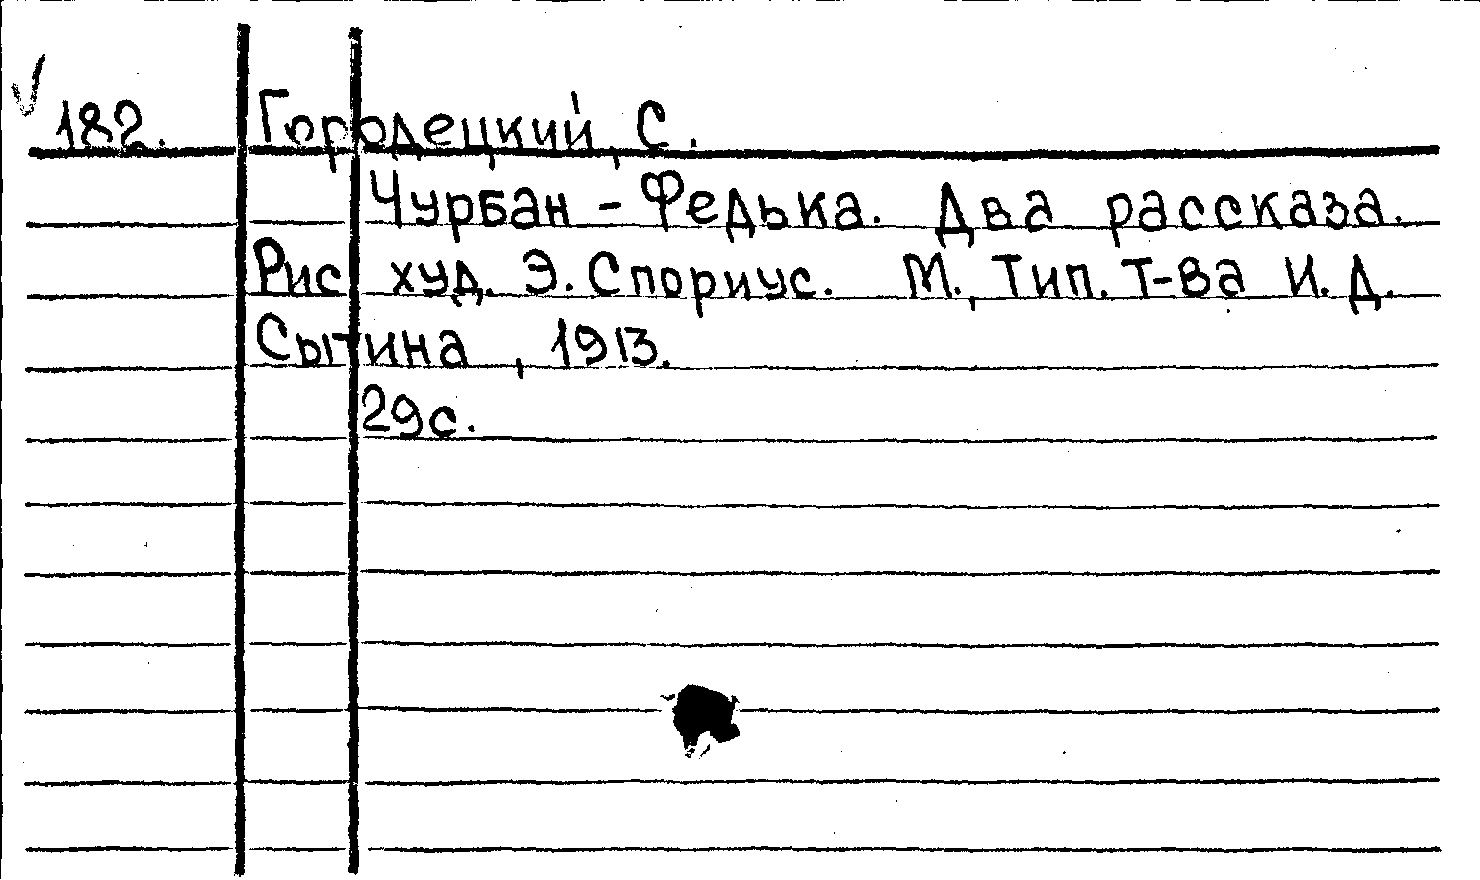 182. Городецкий, С.
Чурбан - Федька. Два рассказа.
Рис худ. Э. Спориус. М., Тип. Т-ва И. Д.
Сытина, 1913.
29с.